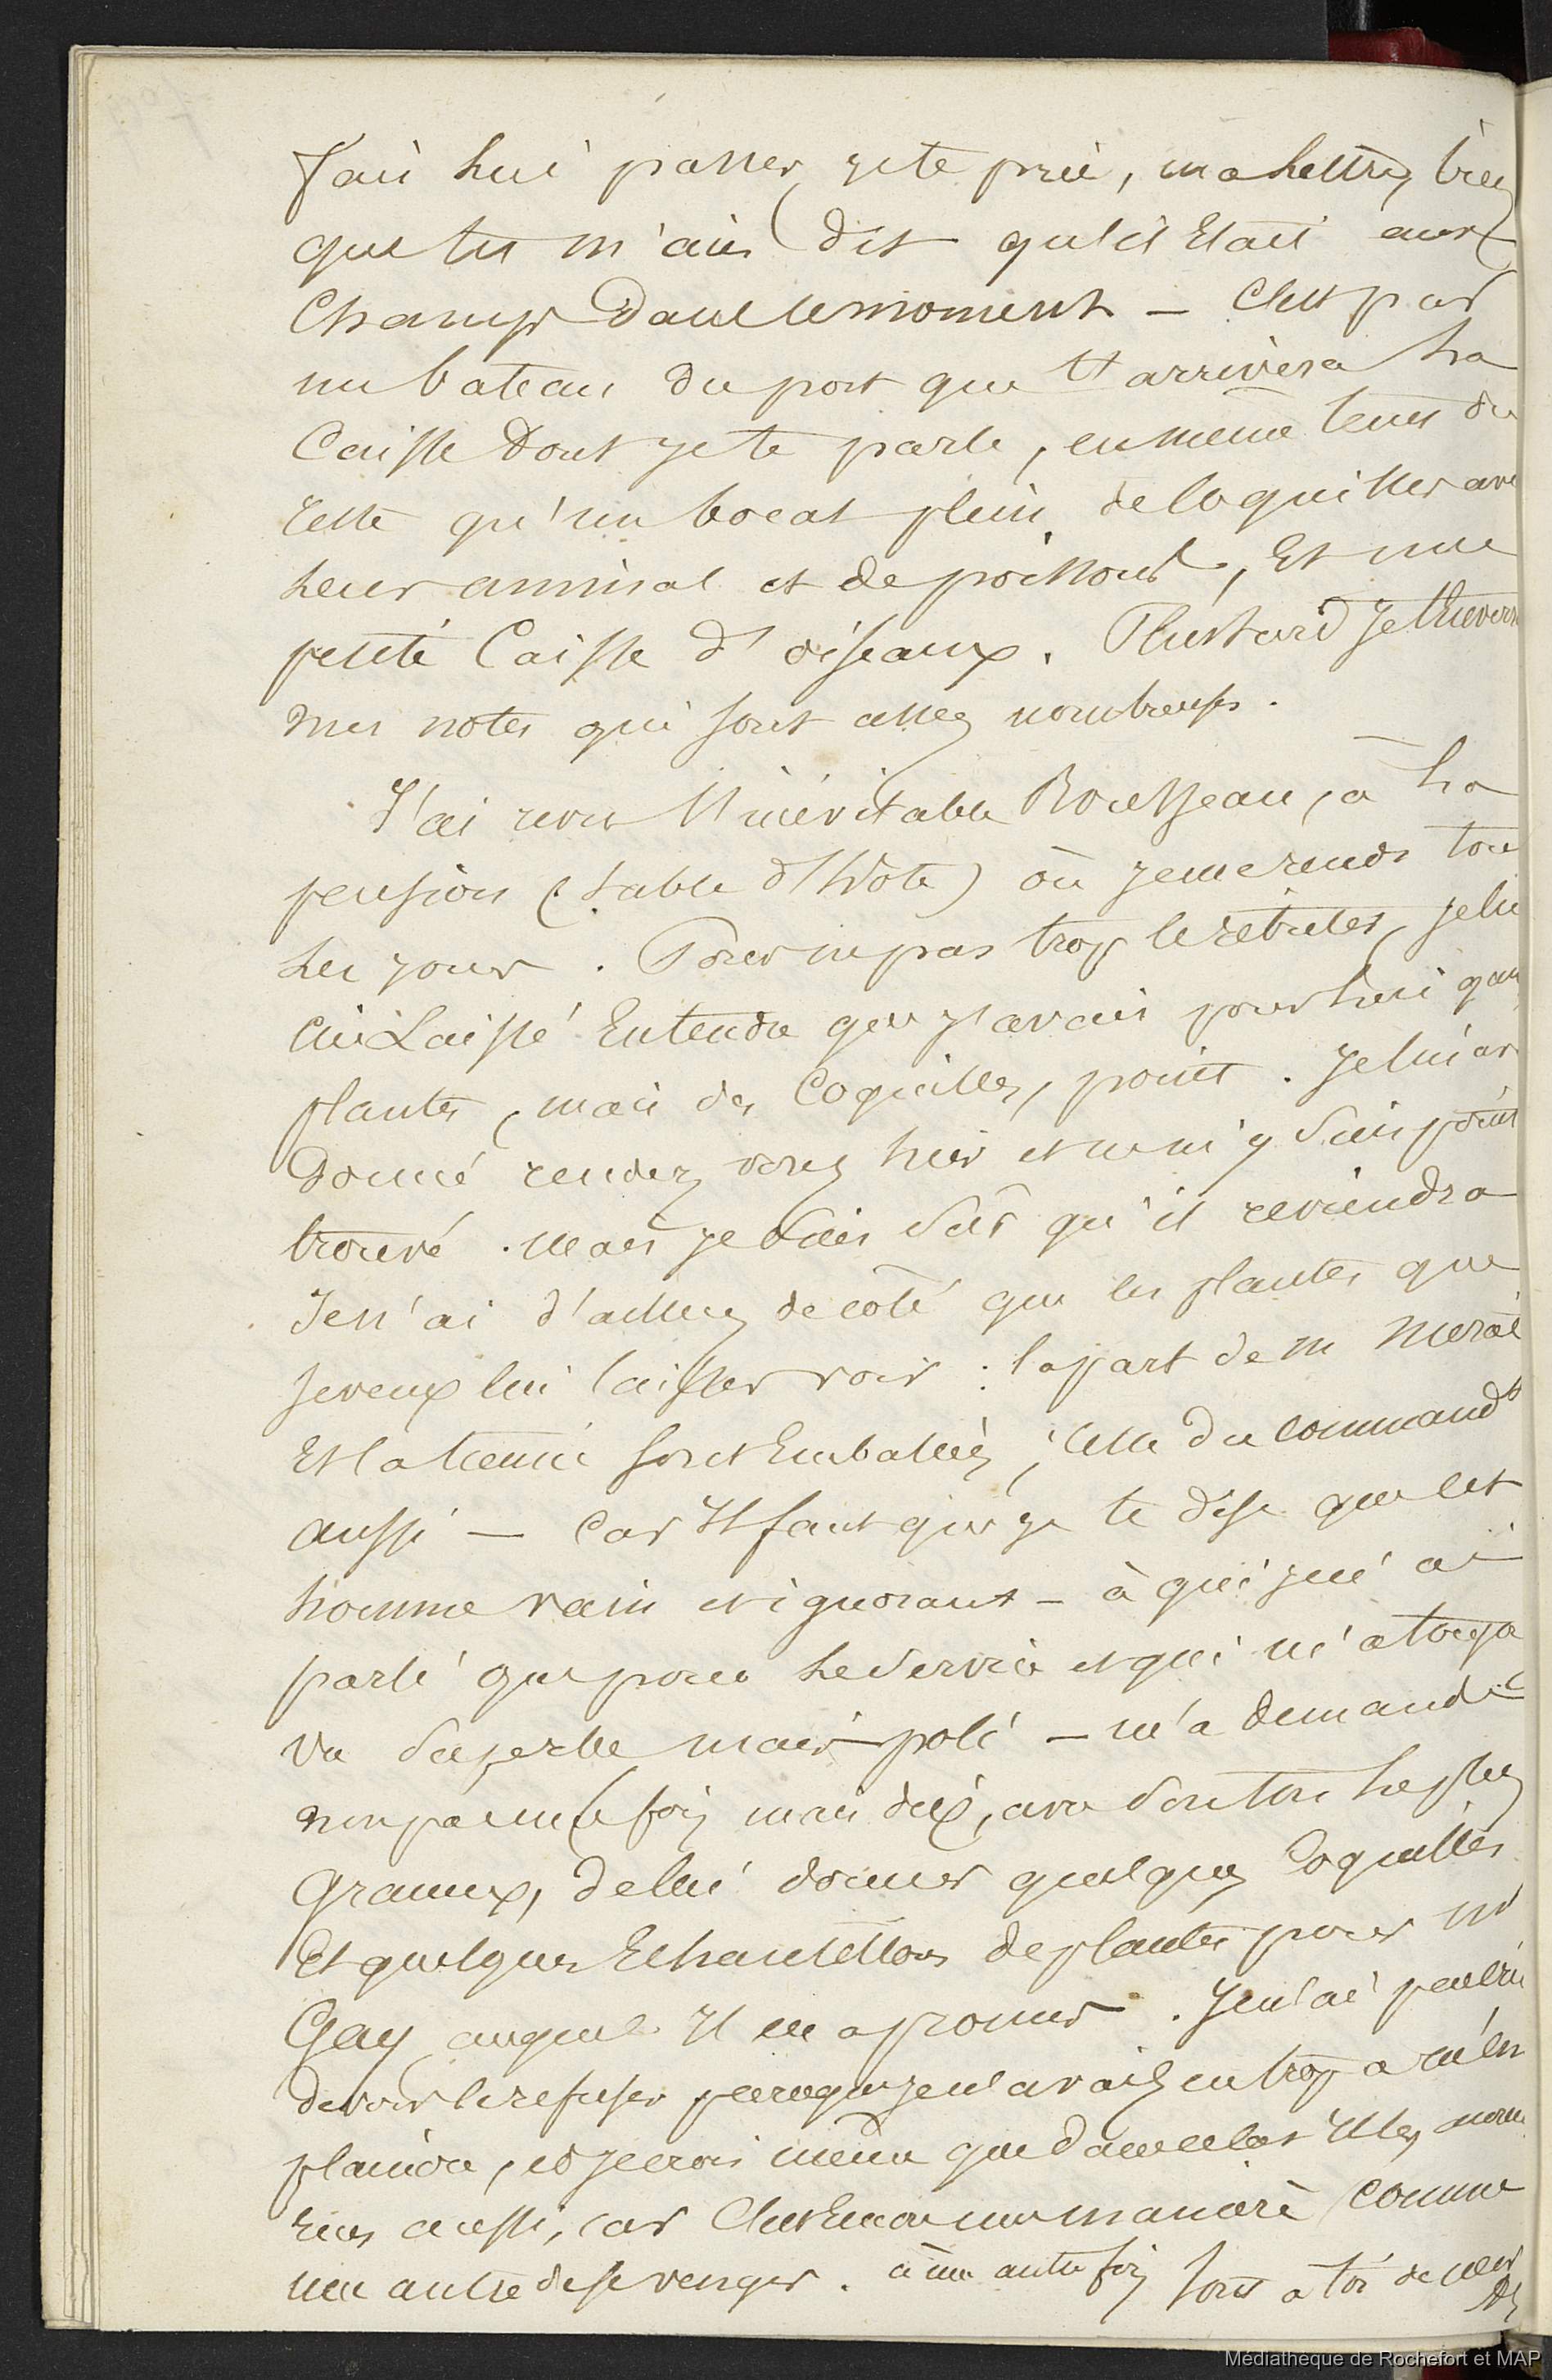 Fais lui passer, je te prie, ma lettre, bien
que tu m'aies dit qu'il était aux
Champs dans le moment — C'est par
un bateau du port que t'arrivera la
Caisse dont je te parle, en même tems du
reste qu'un bocal plein de coquilles avec
leur animal et de poissons, Et une
petite Caisse d'oiseaux. Plus tard je t'enverrai
mes notes qui sont assez nombreuses.
J'ai revu l'inévitable Rousseau, à la
pension (table d'hôte) où je me rends tous
les jours. Pour ne pas trop le rebuter, je lui
ai Laissé Entendre que j'avais pour lui quelques
plantes, mais des Coquilles, point. Je lui avais
Donné rendez vous hier et ne m'y suis point
trouvé. Mais je suis sûr qu'il reviendra
Je n'ai d'ailleurs de côté que les plantes que
je veux lui laisser voir : la part de M
Et la tienne sont Emballées, Celle du Commandt
aussi — Car Il faut que je te dise que cet
homme vain et ignorant — à qui je n'ai
parlé que pour le service et qui ne m'a toujours
vu mais poli — m'a demandé
non pas une fois mais dix, avec son ton le plus
gracieux, de lui donner quelques Coquilles
Et quelques Echantillons de plantes pour Mr
Gay auquel Il en a promis. Je n'ai pas cru
devoir le refuser parce que je l'avais en trop à m'en
plaindre, et je crois même que dans ce cas
rien aussi, car C'est Encore une manière comme
une autre de se venger. à une autre fois sois à toi de